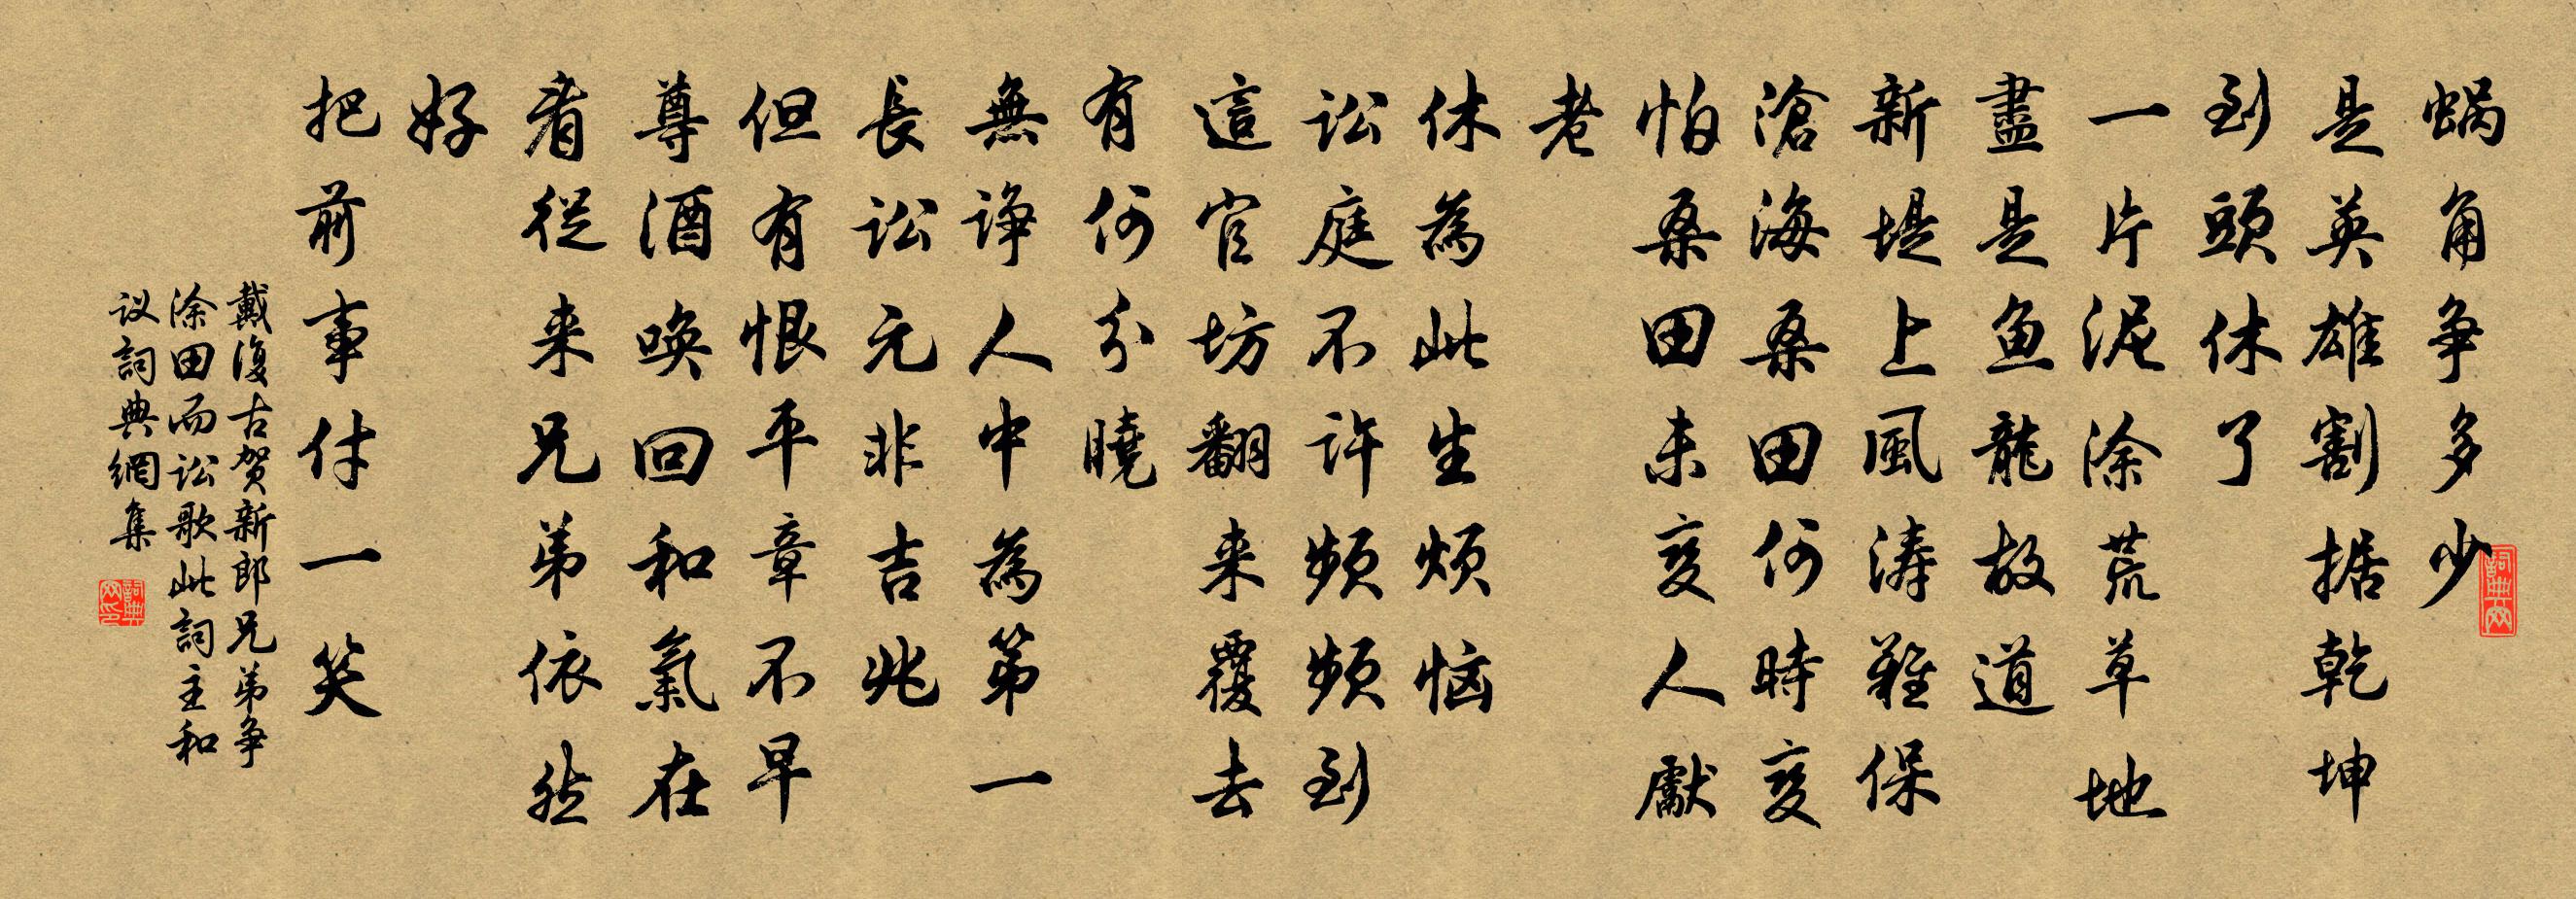 蝸角争多少
是英雄割据乾坤
到頭休了
一片泥涂荒草地
盡是魚龍故道
新堤上風涛難保
滄海桑田何時变
怕桑田未变人獻
老
休為此生烦恼
讼庭不许频频到
這官坊翻来覆去
有何分曉
無諍人中為第一
長讼元非吉兆
但有恨平章不早
尊酒唤回和氣在
看從来兄弟依然
好
把前事付一笑
戴復古贺新郎兄弟争
涂田而讼歌此詞主和
议詞典網集
詞典网
詞典网印